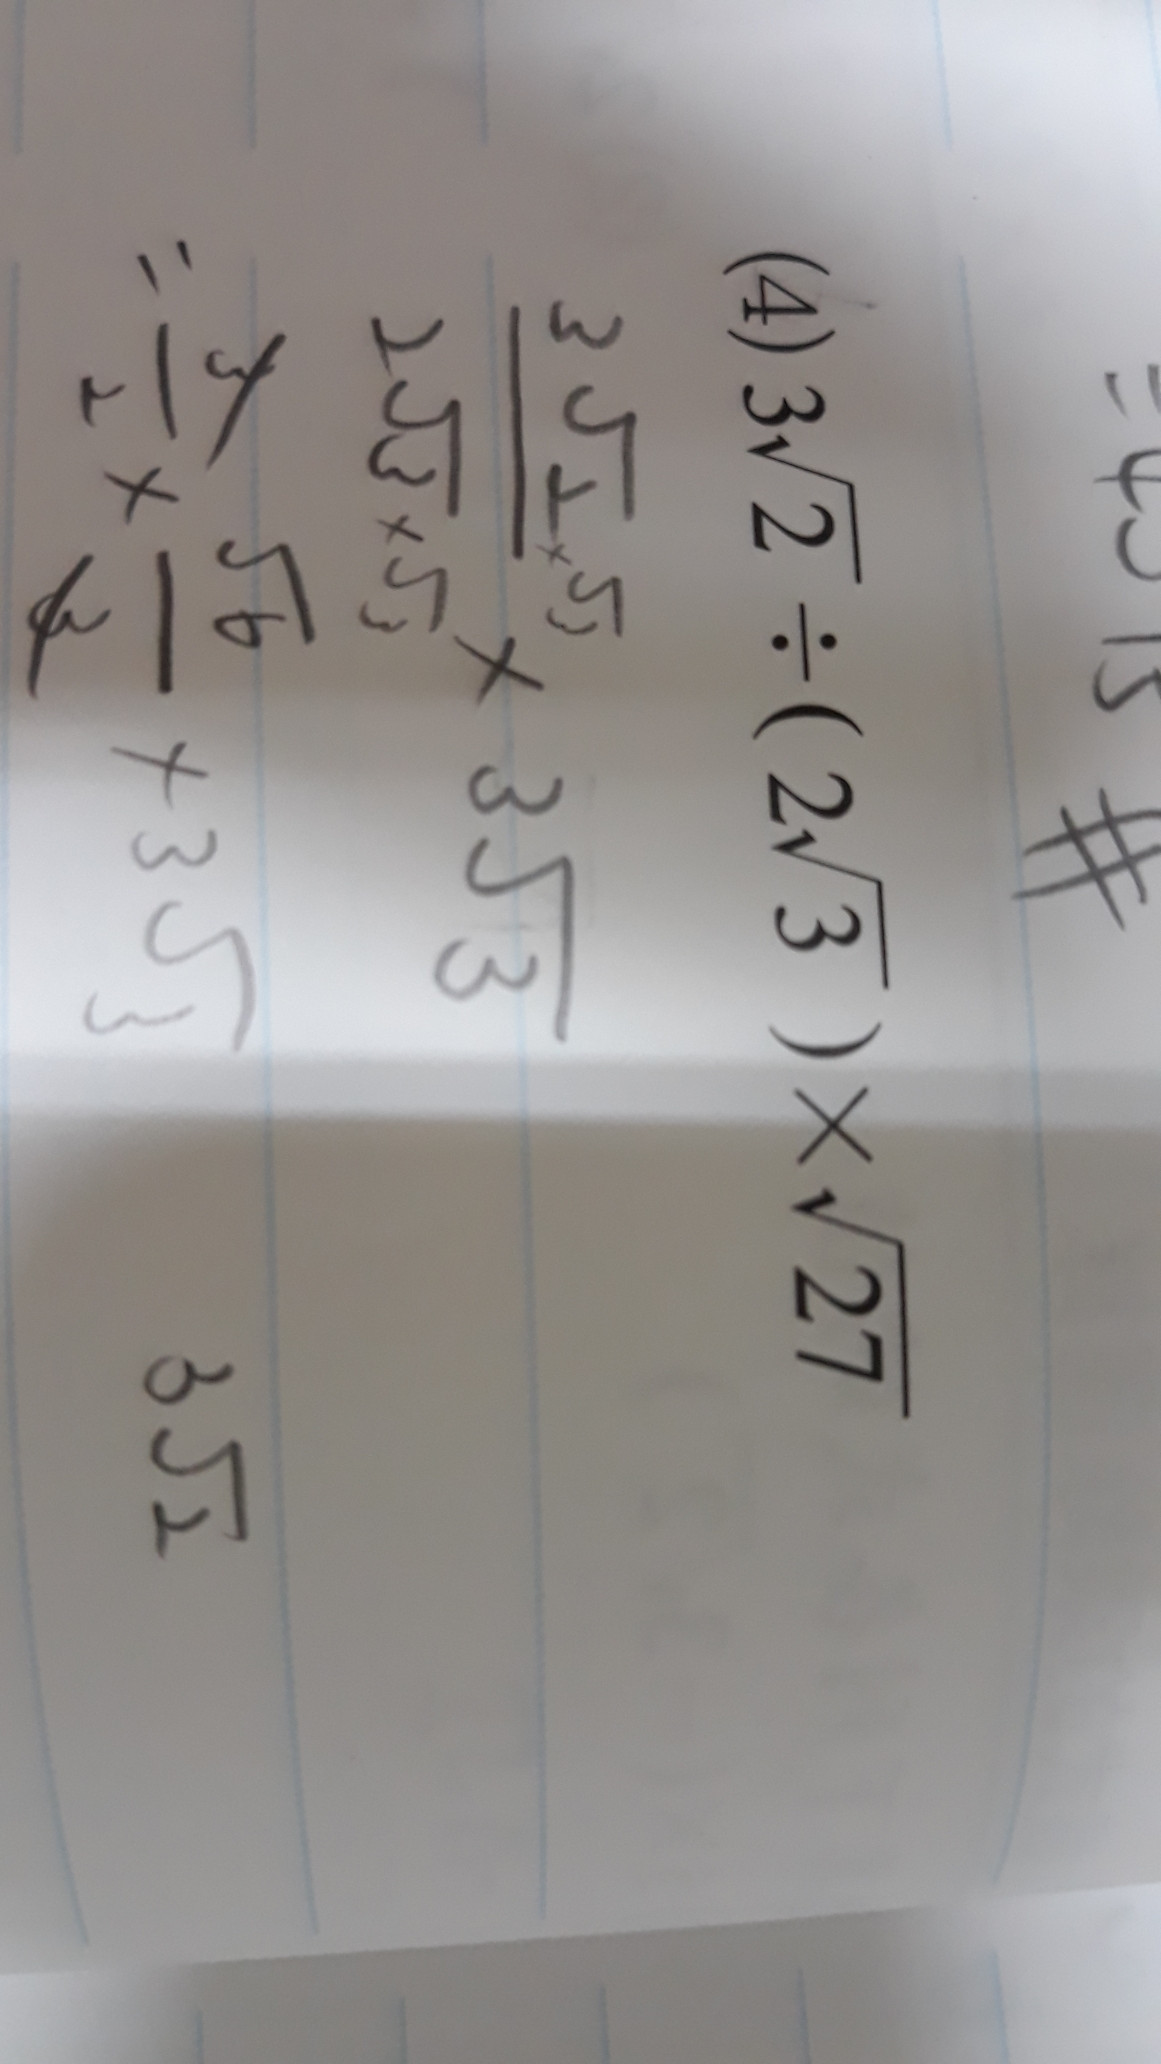 (4) 3√2 ÷ (2√3) × √27
3√2×√3 / 2√3×√3 × 3√3
= 3/2 × √6/3 × 3√3
3√2